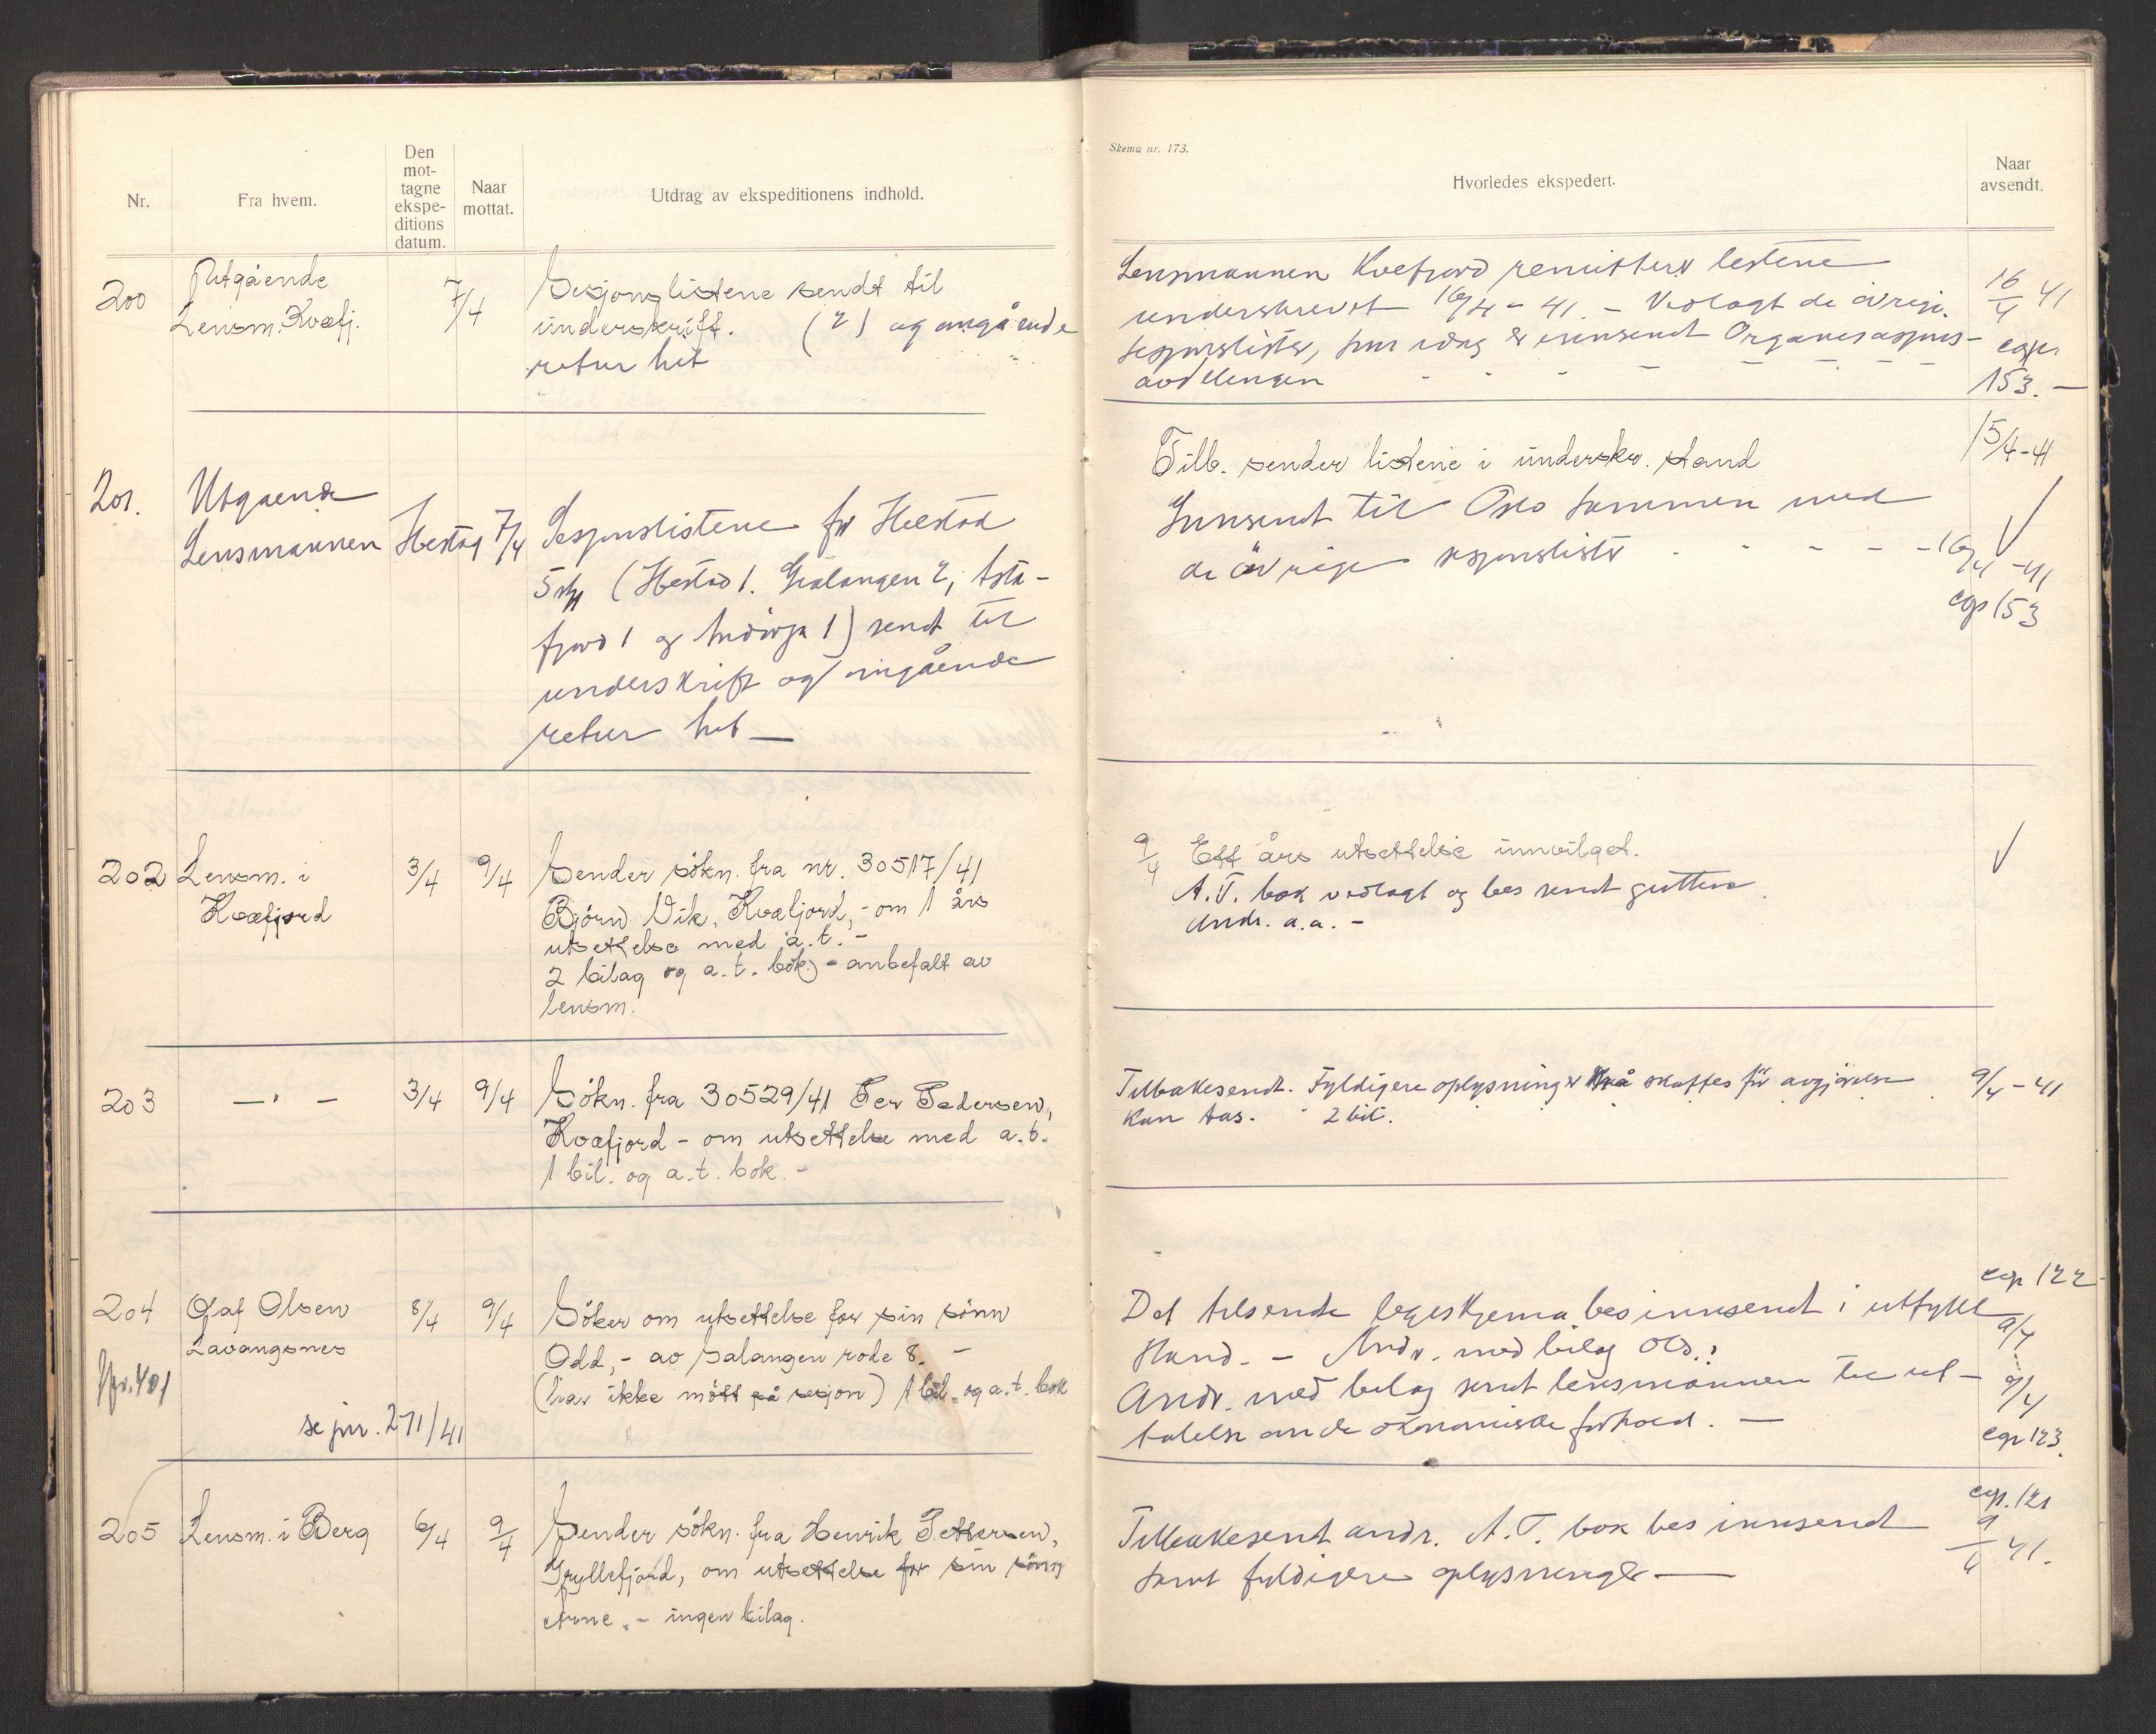 Nr.
Fra hvem.
Den
mot-
tagne
ekspe-
ditions
datum.
Naar
mottat.
Utdrag av ekspeditionens indhold.
200
Utgående
Lensm. Kvæfj.
7/4
Sesjonslistene sendt til
underskrift. (2) og omgående
retur hit
201.
Utgaende
Lensmannen Ibestad 7/4
Sesjonslistene for Ibestad
5 stk (Ibestad 1. Gratangen 2, Asta-
fjord 1 og Andörja 1) sendt til
underskrift og omgående
retur hit —
202
Lensm. i
Kvæfjord
3/4
9/4
Sender sökn. fra nr. 30517/41
Björn Vik, Kvæfjord, - om 1 års
utsettelse med a.t. -
2 bilag og a.t. bok) - anbefalt av
lensm.
203
— " —
3/4
9/4
Sökn. fra 30529/41 Per Pedersen,
Kvæfjord - om utsettelse med a.t.
1 bil. og a.t. bok. -
204
Olaf Olsen
Lavangsnes
8/4
9/4
Söker om utsettelse for sin sönn
Odd, - av Salangen rode 8. -
(har ikke mött på sesjon) 1 bil. og a.t. bok
se jnr. 271/41
205
Lensm. i Berg
6/4
9/4
Sender sökn. fra Henrik Pettersen,
Gryllefjord, om utsettelse for sin sönn
Arne. - ingen bilag.
Skema nr. 173.
Hvorledes ekspedert.
Naar
avsendt.
Lensmannen Kvefjord remitterer listene
underskrevet 16/4 - 41. - Vedlagt de övrige
sesjonslister, som idag er innsendt Organisasjons-
avdelingen - - - - - - -
16/4 41
cop.
153. —
Tilb. sender listene i underskr. stand
15/4-41
Innsendt til Oslo sammen med
de övrige sesjonslister - - - - - 16/4 -41
cop 153
9/4 Ett års utsettelse innvilget.
A.T. bok vedlagt og bes sendt gutten
Andr. a.a. -
Tilbakesendt. Fyldigere oplysninger må skaffes för avgjörelse
kan tas. - 2 bil.
9/4 - 41
cop 122
Det tilsendte legeskjema bes innsendt i utfyllt
stand. - Andr. med bilag
9/4
Andr. med bilag sendt lensmannen til ut-
talelse om de ökonomiske forhold. —
9/4
cop 123.
cop. 121
Tilbakesent andr. A.T. bok bes innsendt
samt fyldigere oplysninger —
9/4 41.